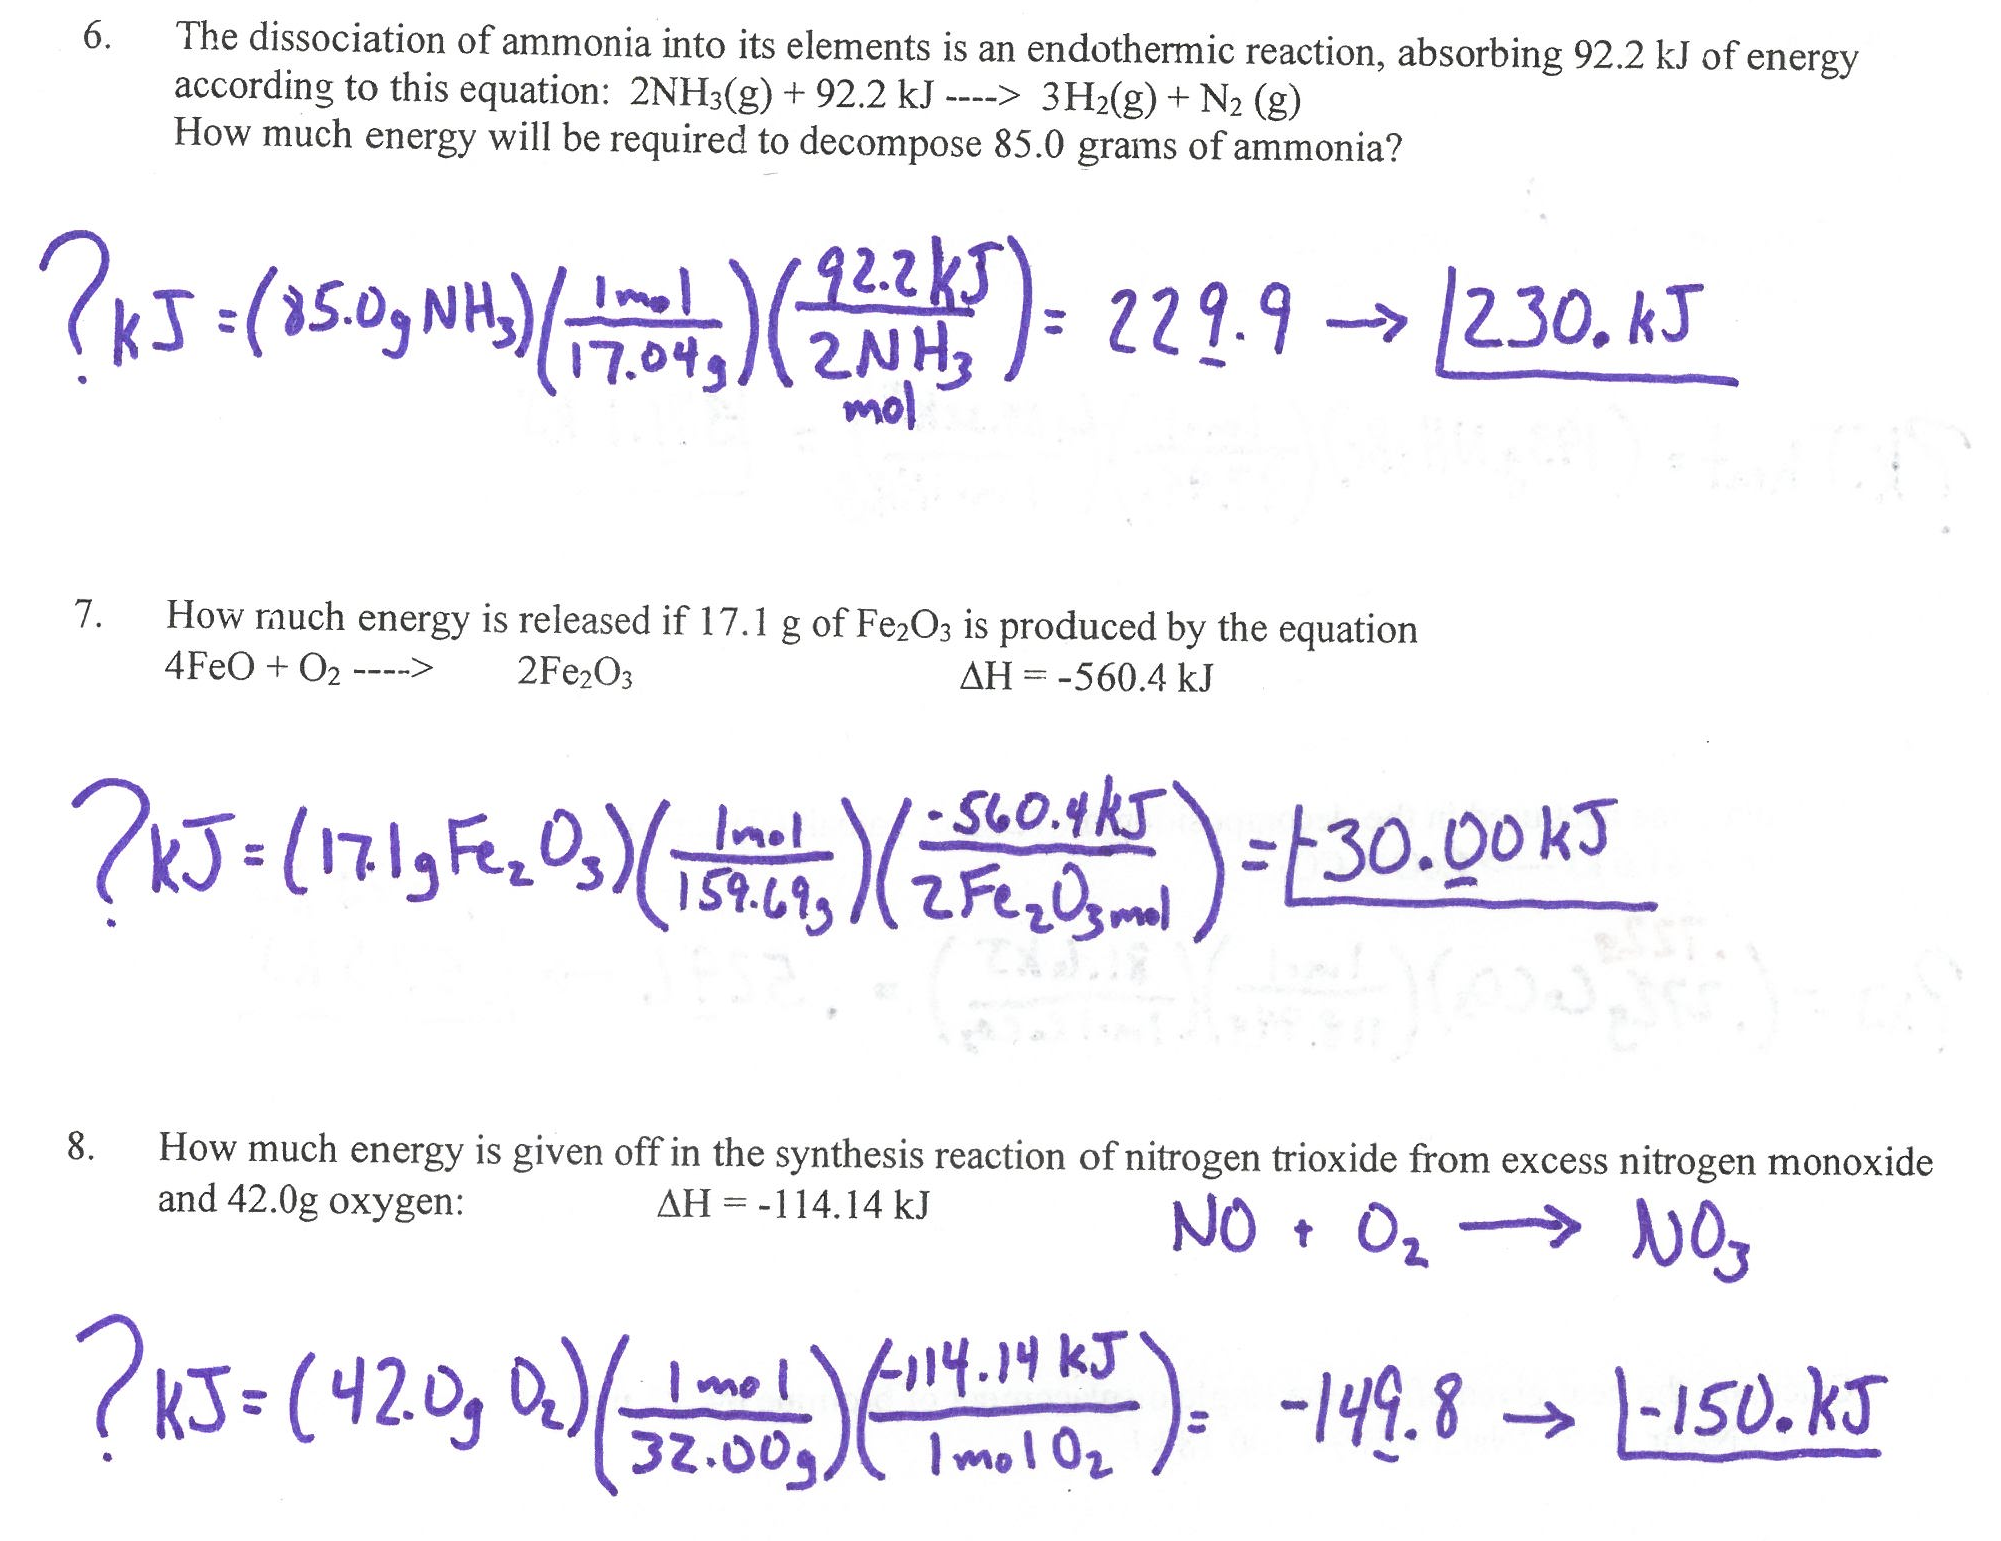 6. The dissociation of ammonia into its elements is an endothermic reaction, absorbing 92.2 kJ of energy
according to this equation: 2NH₃(g) + 92.2 kJ ----> 3H₂(g) + N₂ (g)
How much energy will be required to decompose 85.0 grams of ammonia?
? kJ = (85.0g NH₃)(1mol/17.04g)(92.2kJ/2NH₃ mol) = 229.9 → 230. kJ
7. How much energy is released if 17.1 g of Fe₂O₃ is produced by the equation
4FeO + O₂ ----> 2Fe₂O₃ ΔH = -560.4 kJ
? kJ = (17.1g Fe₂O₃)(1mol/159.69g)(-560.4kJ/2Fe₂O₃ mol) = -30.00 kJ
8. How much energy is given off in the synthesis reaction of nitrogen trioxide from excess nitrogen monoxide
and 42.0g oxygen: ΔH = -114.14 kJ
NO + O₂ → NO₃
? kJ = (42.0g O₂)(1mol/32.00g)(-114.14 kJ/1mol O₂) = -149.8 → -150. kJ